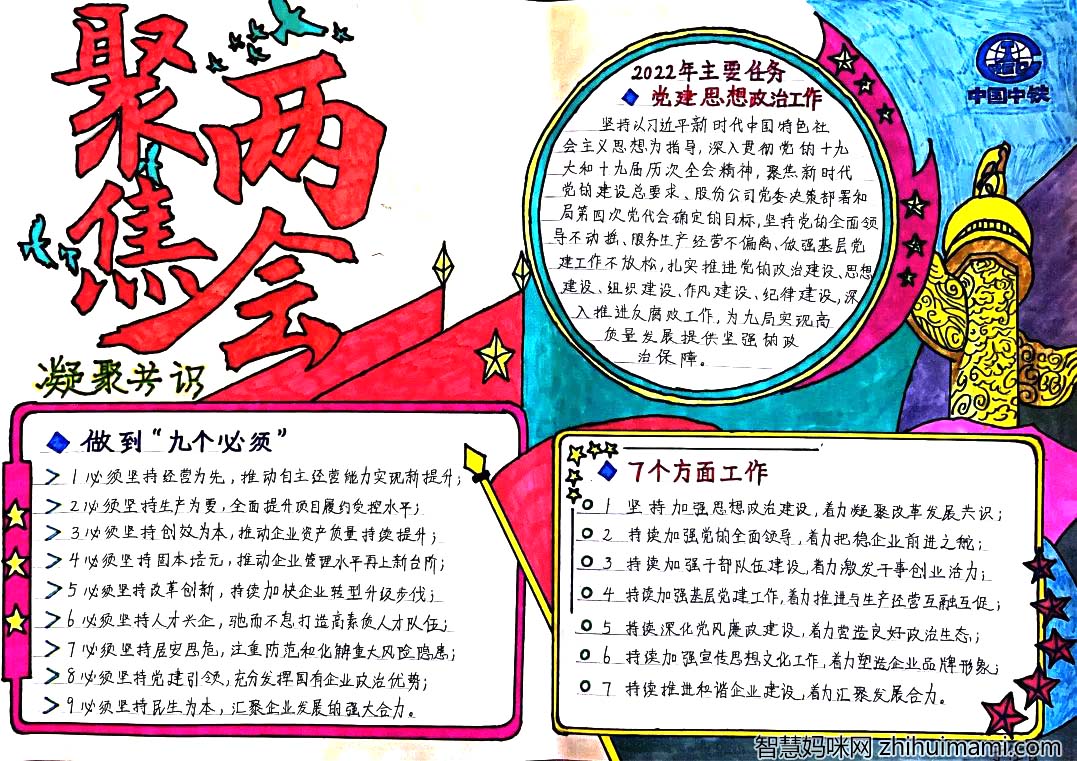 聚焦
两会
凝聚共识
做到“九个必须”
1 必须坚持经营为先，推动自主经营能力实现新提升；
2 必须坚持生产为要，全面提升项目履约受控水平；
3 必须坚持创效为本，推动企业资产质量持续提升；
4 必须坚持固本培元，推动企业管理水平再上新台阶；
5 必须坚持改革创新，持续加快企业转型升级步伐；
6 必须坚持人才兴企，驰而不息打造高素质人才队伍；
7 必须坚持居安思危，注重防范和化解重大风险隐患；
8 必须坚持党建引领，充分发挥国有企业政治优势；
9 必须坚持民生为本，汇聚企业发展的强大合力。
2022年主要任务
党建思想政治工作
坚持以习近平新时代中国特色社
会主义思想为指导，深入贯彻党的十九
大和十九届历次全会精神，聚焦新时代
党的建设总要求、股份公司党委决策部署和
局第四次党代会确定的目标，坚持党的全面领
导不动摇、服务生产经营不偏离、做强基层党
建工作不放松，扎实推进党的政治建设、思想
建设、组织建设、作风建设、纪律建设，深
入推进反腐败工作，为九局实现高
质量发展提供坚强的政
治保障。
中国中铁
7个方面工作
1 坚持加强思想政治建设，着力凝聚改革发展共识；
2 持续加强党的全面领导，着力把稳企业前进之舵；
3 持续加强干部队伍建设，着力激发干事创业活力；
4 持续加强基层党建工作，着力推进与生产经营互融互促；
5 持续深化党风廉政建设，着力营造良好政治生态；
6 持续加强宣传思想文化工作，着力塑造企业品牌形象；
7 持续推进和谐企业建设，着力汇聚发展合力。
智慧妈咪网 zhihuimami.com